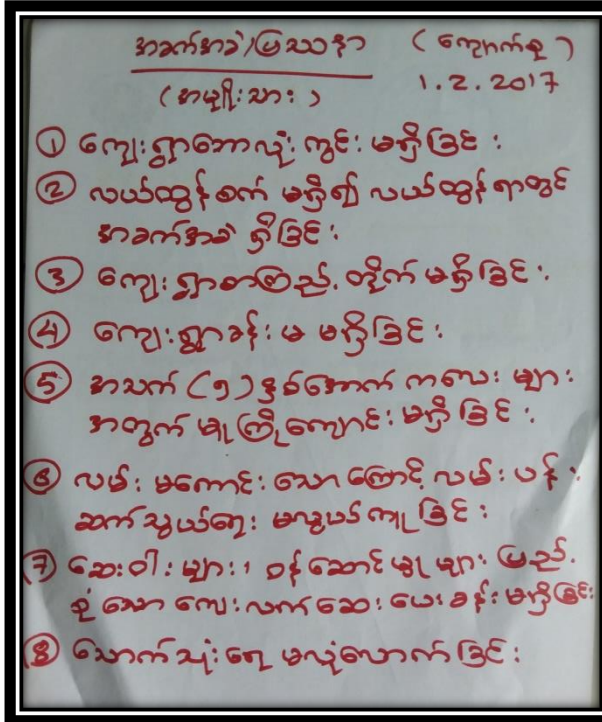 အခက်အခဲ/ပြဿနာ (ကျောက်စု)
(အမျိုးသား) 1.2.2017
① ကျေးရွာဘောလုံးကွင်း မရှိခြင်း
② လယ်ထွန်စက် မရှိ၍ လယ်ထွန်ရာတွင်
အခက်အခဲ ရှိခြင်း
③ ကျေးရွာစာကြည့်တိုက် မရှိခြင်း
④ ကျေးရွာခန်းမ မရှိခြင်း
⑤ အသက် (၅) နှစ်အောက် ကလေးများ
အတွက် မူကြိုကျောင်း မရှိခြင်း
⑥ လမ်းမကောင်းသောကြောင့် လမ်းပန်း
ဆက်သွယ်ရေး မလွယ်ကူခြင်း
⑦ ဆေးဝါးများ၊ ဝန်ဆောင်မှုများ ပြည့်
စုံသော ကျေးလက်ဆေးပေးခန်းမရှိခြင်း
⑧ သောက်သုံးရေ မလုံလောက်ခြင်း